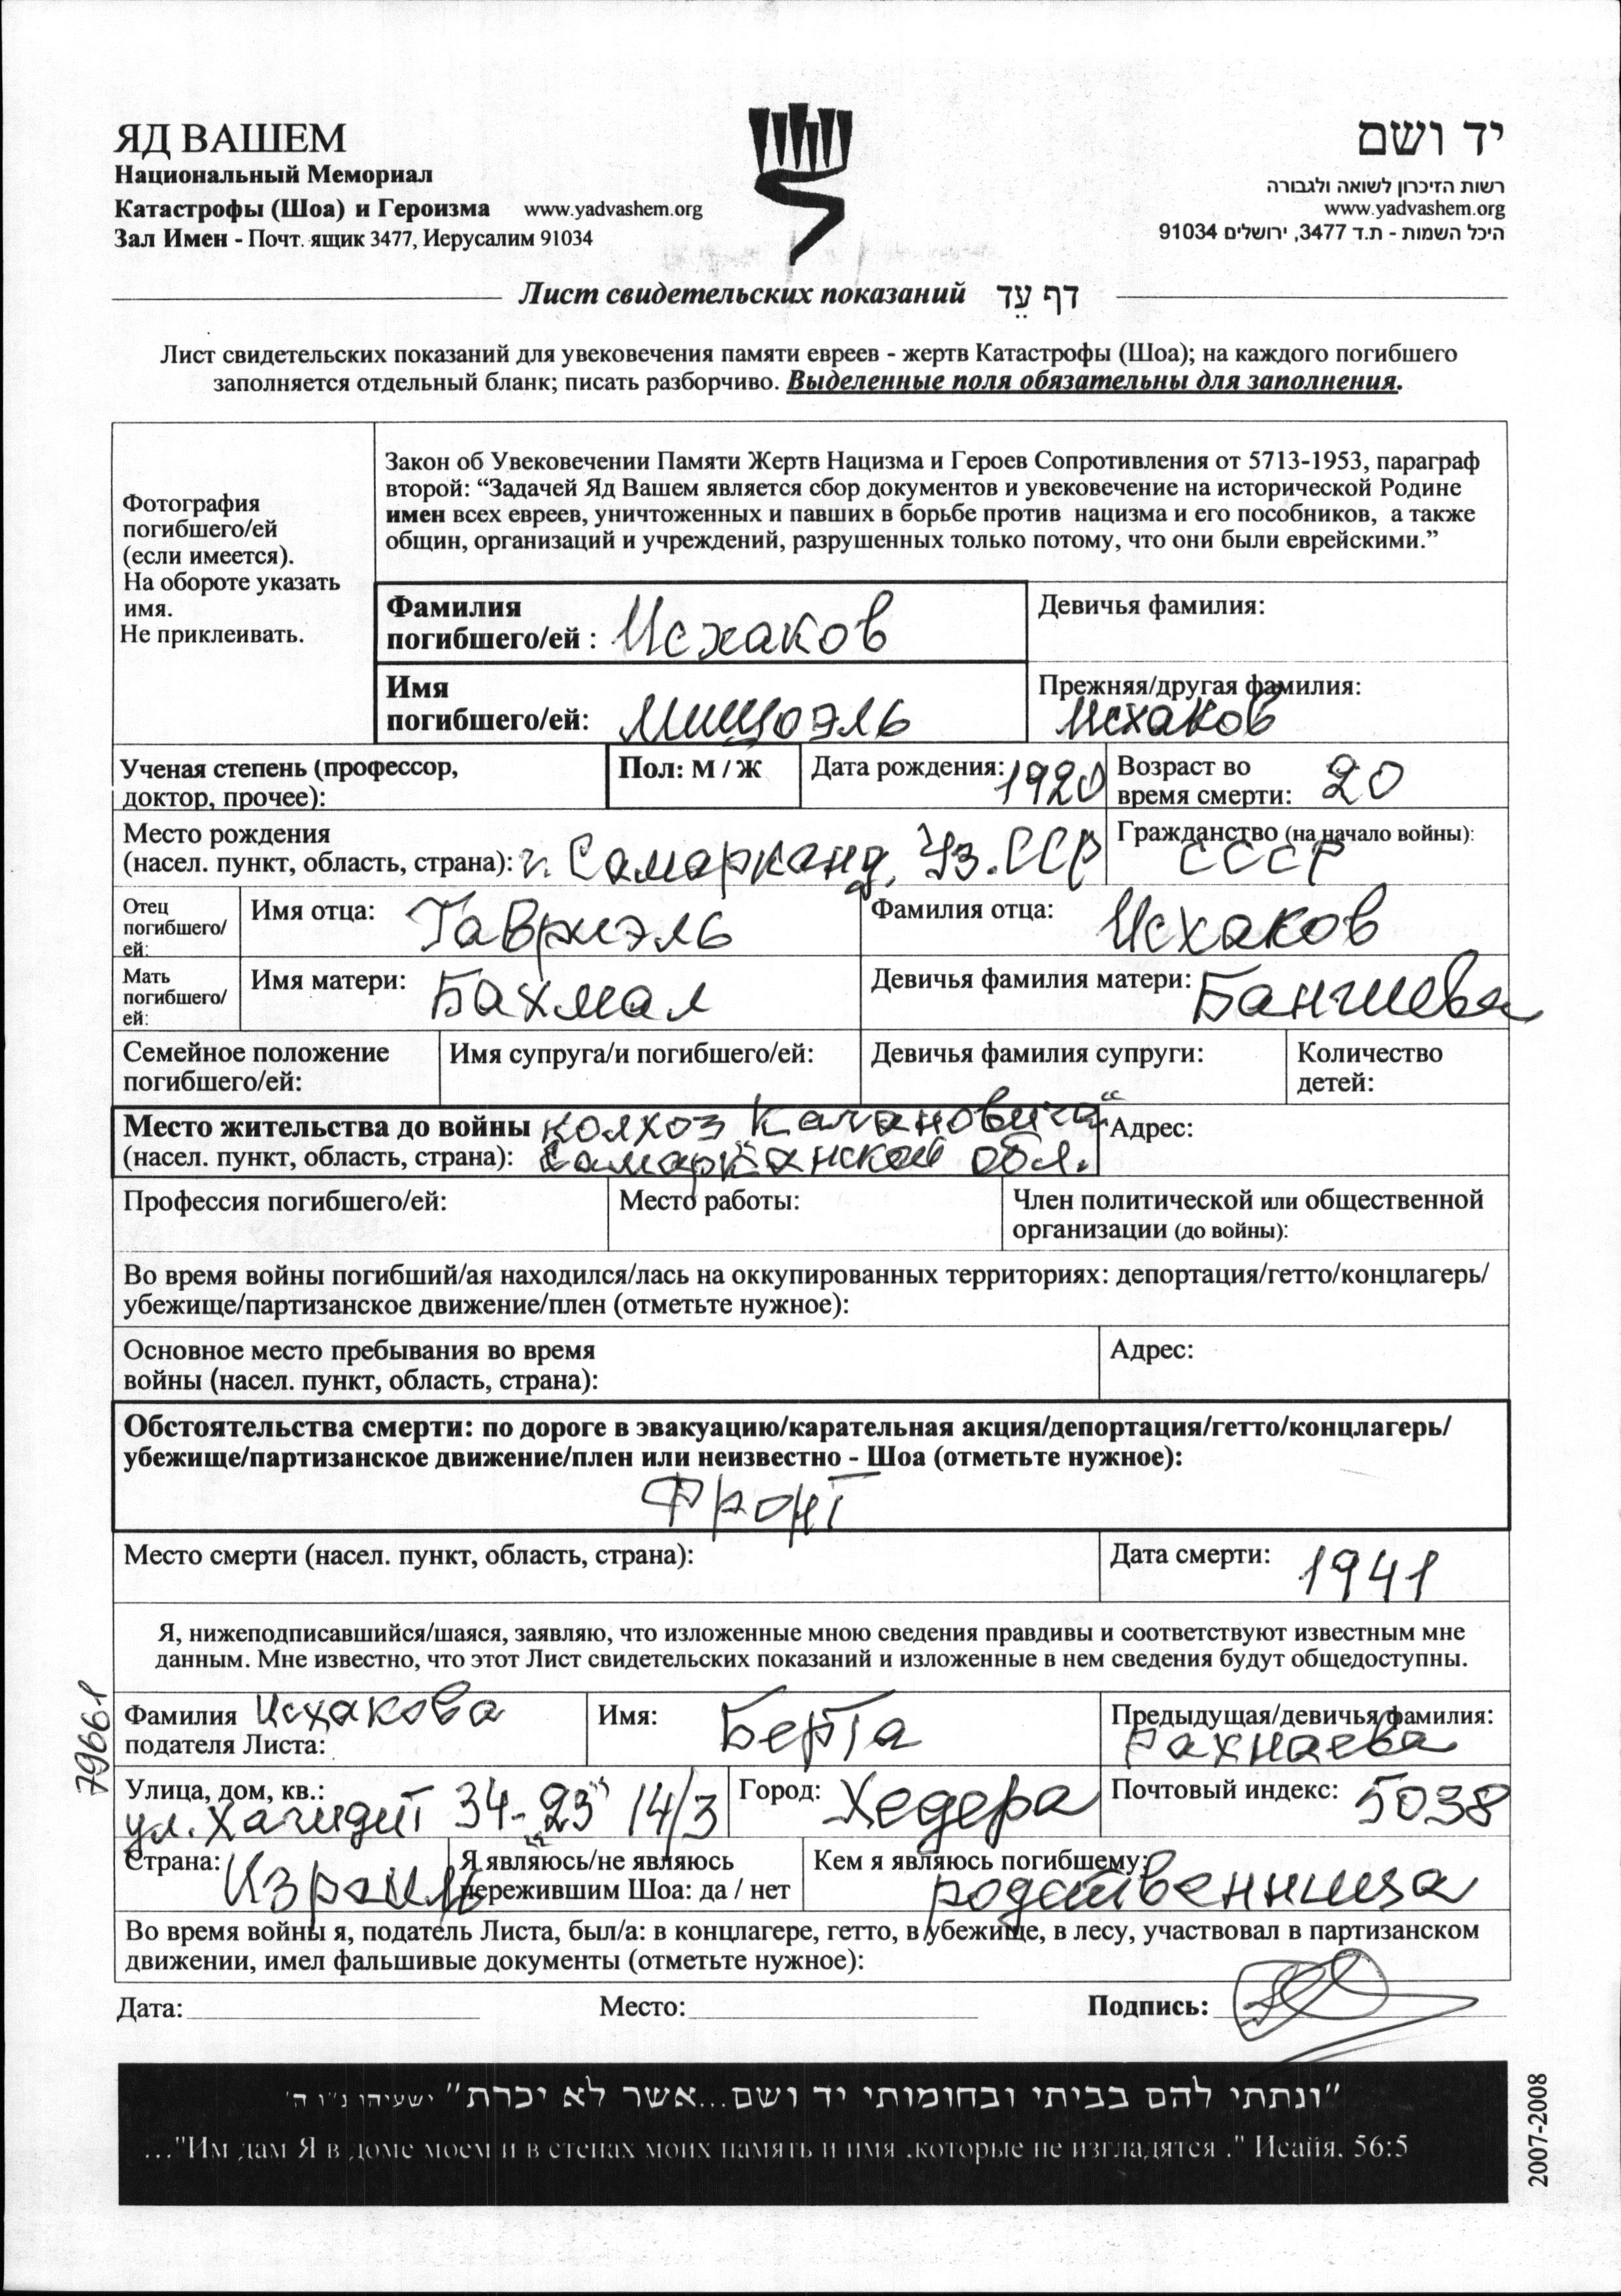 ЯД ВАШЕМ
Национальный Мемориал
Катастрофы (Шоа) и Героизма www.yadvashem.org
Зал Имен - Почт. ящик 3477, Иерусалим 91034
יד ושם
רשות הזיכרון לשואה ולגבורה
www.yadvashem.org
היכל השמות - ת.ד 3477, ירושלים 91034
Лист свидетельских показаний דף עֵד
Лист свидетельских показаний для увековечения памяти евреев - жертв Катастрофы (Шоа); на каждого погибшего
заполняется отдельный бланк; писать разборчиво. Выделенные поля обязательны для заполнения.
Фотография
погибшего/ей
(если имеется).
На обороте указать
имя.
Не приклеивать.
Закон об Увековечении Памяти Жертв Нацизма и Героев Сопротивления от 5713-1953, параграф
второй: “Задачей Яд Вашем является сбор документов и увековечение на исторической Родине
имен всех евреев, уничтоженных и павших в борьбе против нацизма и его пособников, а также
общин, организаций и учреждений, разрушенных только потому, что они были еврейскими.”
Фамилия
погибшего/ей : Исхаков
Девичья фамилия:
Имя
погибшего/ей: Мишоэль
Прежняя/другая фамилия:
Исхаков
Ученая степень (профессор,
доктор, прочее):
Пол: М / Ж
Дата рождения: 1920
Возраст во
время смерти: 20
Место рождения
(насел. пункт, область, страна): г. Самарканд, Уз.ССР
Гражданство (на начало войны):
СССР
Отец
погибшего/
ей:
Имя отца: Гавриэль
Фамилия отца: Исхаков
Мать
погибшего/
ей:
Имя матери: Бахмал
Девичья фамилия матери: Бангиева
Семейное положение
погибшего/ей:
Имя супруга/и погибшего/ей:
Девичья фамилия супруги:
Количество
детей:
Место жительства до войны колхоз „Кагановича“
(насел. пункт, область, страна): Самарканской обл.
Адрес:
Профессия погибшего/ей:
Место работы:
Член политической или общественной
организации (до войны):
Во время войны погибший/ая находился/лась на оккупированных территориях: депортация/гетто/концлагерь/
убежище/партизанское движение/плен (отметьте нужное):
Основное место пребывания во время
войны (насел. пункт, область, страна):
Адрес:
Обстоятельства смерти: по дороге в эвакуацию/карательная акция/депортация/гетто/концлагерь/
убежище/партизанское движение/плен или неизвестно - Шоа (отметьте нужное):
Фронт
Место смерти (насел. пункт, область, страна):
Дата смерти: 1941
Я, нижеподписавшийся/шаяся, заявляю, что изложенные мною сведения правдивы и соответствуют известным мне
данным. Мне известно, что этот Лист свидетельских показаний и изложенные в нем сведения будут общедоступны.
Фамилия Исхакова
подателя Листа:
Имя: Берта
Предыдущая/девичья фамилия:
Рахнаева
Улица, дом, кв.:
ул. Хагидит 34-„23“ 14/3
Город: Хедера
Почтовый индекс: 5038
Страна: Израиль
Я являюсь/не являюсь
пережившим Шоа: да / нет
Кем я являюсь погибшему:
родственница
Во время войны я, податель Листа, был/а: в концлагере, гетто, в убежище, в лесу, участвовал в партизанском
движении, имел фальшивые документы (отметьте нужное):
Дата: Место: Подпись:
79661
"ונתתי להם בביתי ובחומותי יד ושם...אשר לא יכרת" ישעיהו נ"ו ה'
..."Им дам Я в доме моем и в стенах моих память и имя ,которые не изгладятся ." Исайя, 56:5
2007-2008